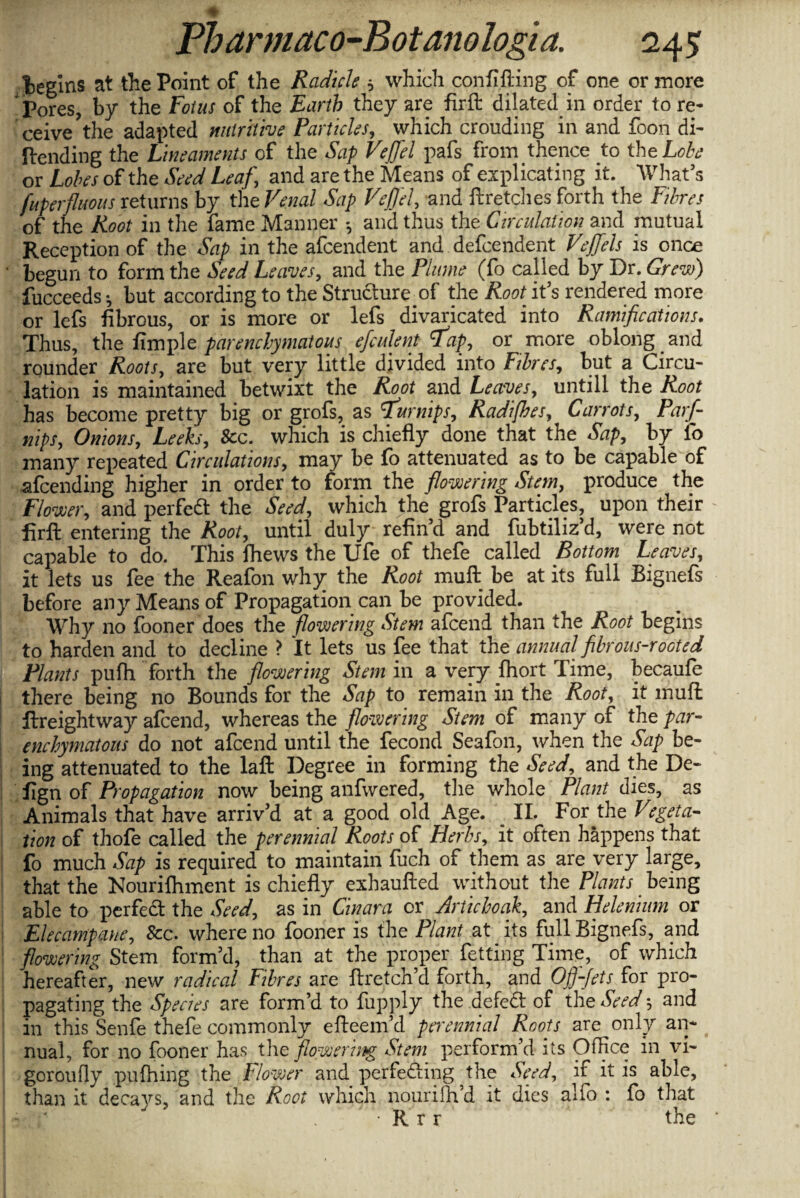 Pharmaco-Botanologia. 245
begins at the Point of the Radicle; which conſiſting of one or more
Pores, by the Fotus of the Earth they are firſt dilated in order to re-
ceive the adapted nutritive Particles, which crouding in and ſoon di-
ſtending the Lineaments of the Sap Veſſel paſs from thence to the Lobe
or Lobes of the Seed Leaf, and are the Means of explicating it. What's
ſuperfluous returns by the Venal Sap Veſſel, and ſtretches forth the Fibres
of the Root in the ſame Manner; and thus the Circulation and mutual
Reception of the Sap in the aſcendent and deſcendent Veſſels is once
begun to form the Seed Leaves, and the Plume (ſo called by Dr. Grew)
ſucceeds; but according to the Structure of the Root it's rendered more
or leſs fibrous, or is more or leſs divaricated into Ramifications.
Thus, the ſimple parenchymatous eſculent Tap, or more oblong and
rounder Roots, are but very little divided into Fibres, but a Circu-
lation is maintained betwixt the Root and Leaves, untill the Root
has become pretty big or groſs, as Turnips, Radiſhes, Carrots, Parſ-
nips, Onions, Leeks, &c. which is chiefly done that the Sap, by ſo
many repeated Circulations, may be ſo attenuated as to be capable of
aſcending higher in order to form the flowering Stem, produce the
Flower, and perfect the Seed, which the groſs Particles, upon their
firſt entering the Root, until duly refin'd and ſubtiliz'd, were not
capable to do. This ſhews the Uſe of theſe called Bottom Leaves,
it lets us ſee the Reaſon why the Root muſt be at its full Bigneſs
before any Means of Propagation can be provided.
Why no ſooner does the flowering Stem aſcend than the Root begins
to harden and to decline ? It lets us ſee that the annual fibrous-rooted
Plants puſh forth the flowering Stem in a very ſhort Time, becauſe
there being no Bounds for the Sap to remain in the Root, it muſt
ſtreightway aſcend, whereas the flowering Stem of many of the par-
enchymatous do not aſcend until the ſecond Seaſon, when the Sap be-
ing attenuated to the laſt Degree in forming the Seed, and the De-
ſign of Propagation now being anſwered, the whole Plant dies, as
Animals that have arriv'd at a good old Age. II. For the Vegeta-
tion of thoſe called the perennial Roots of Herbs, it often happens that
ſo much Sap is required to maintain ſuch of them as are very large,
that the Nouriſhment is chiefly exhauſted without the Plants being
able to perfect the Seed, as in Cinara or Artichoak, and Helenium or
Elecampane, &c. where no ſooner is the Plant at its full Bigneſs, and
flowering Stem form'd, than at the proper ſetting Time, of which
hereafter, new radical Fibres are ſtretch'd forth, and Off-ſets for pro-
pagating the Species are form'd to ſupply the defect of the Seed; and
in this Senſe theſe commonly eſteem'd perennial Roots are only an-
nual, for no ſooner has the flowering Stem perform'd its Office in vi-
gorouſly puſhing the Flower and perfecting the Seed, if it is able,
than it decays, and the Root which nouriſh'd it dies alſo : ſo that
R r r the